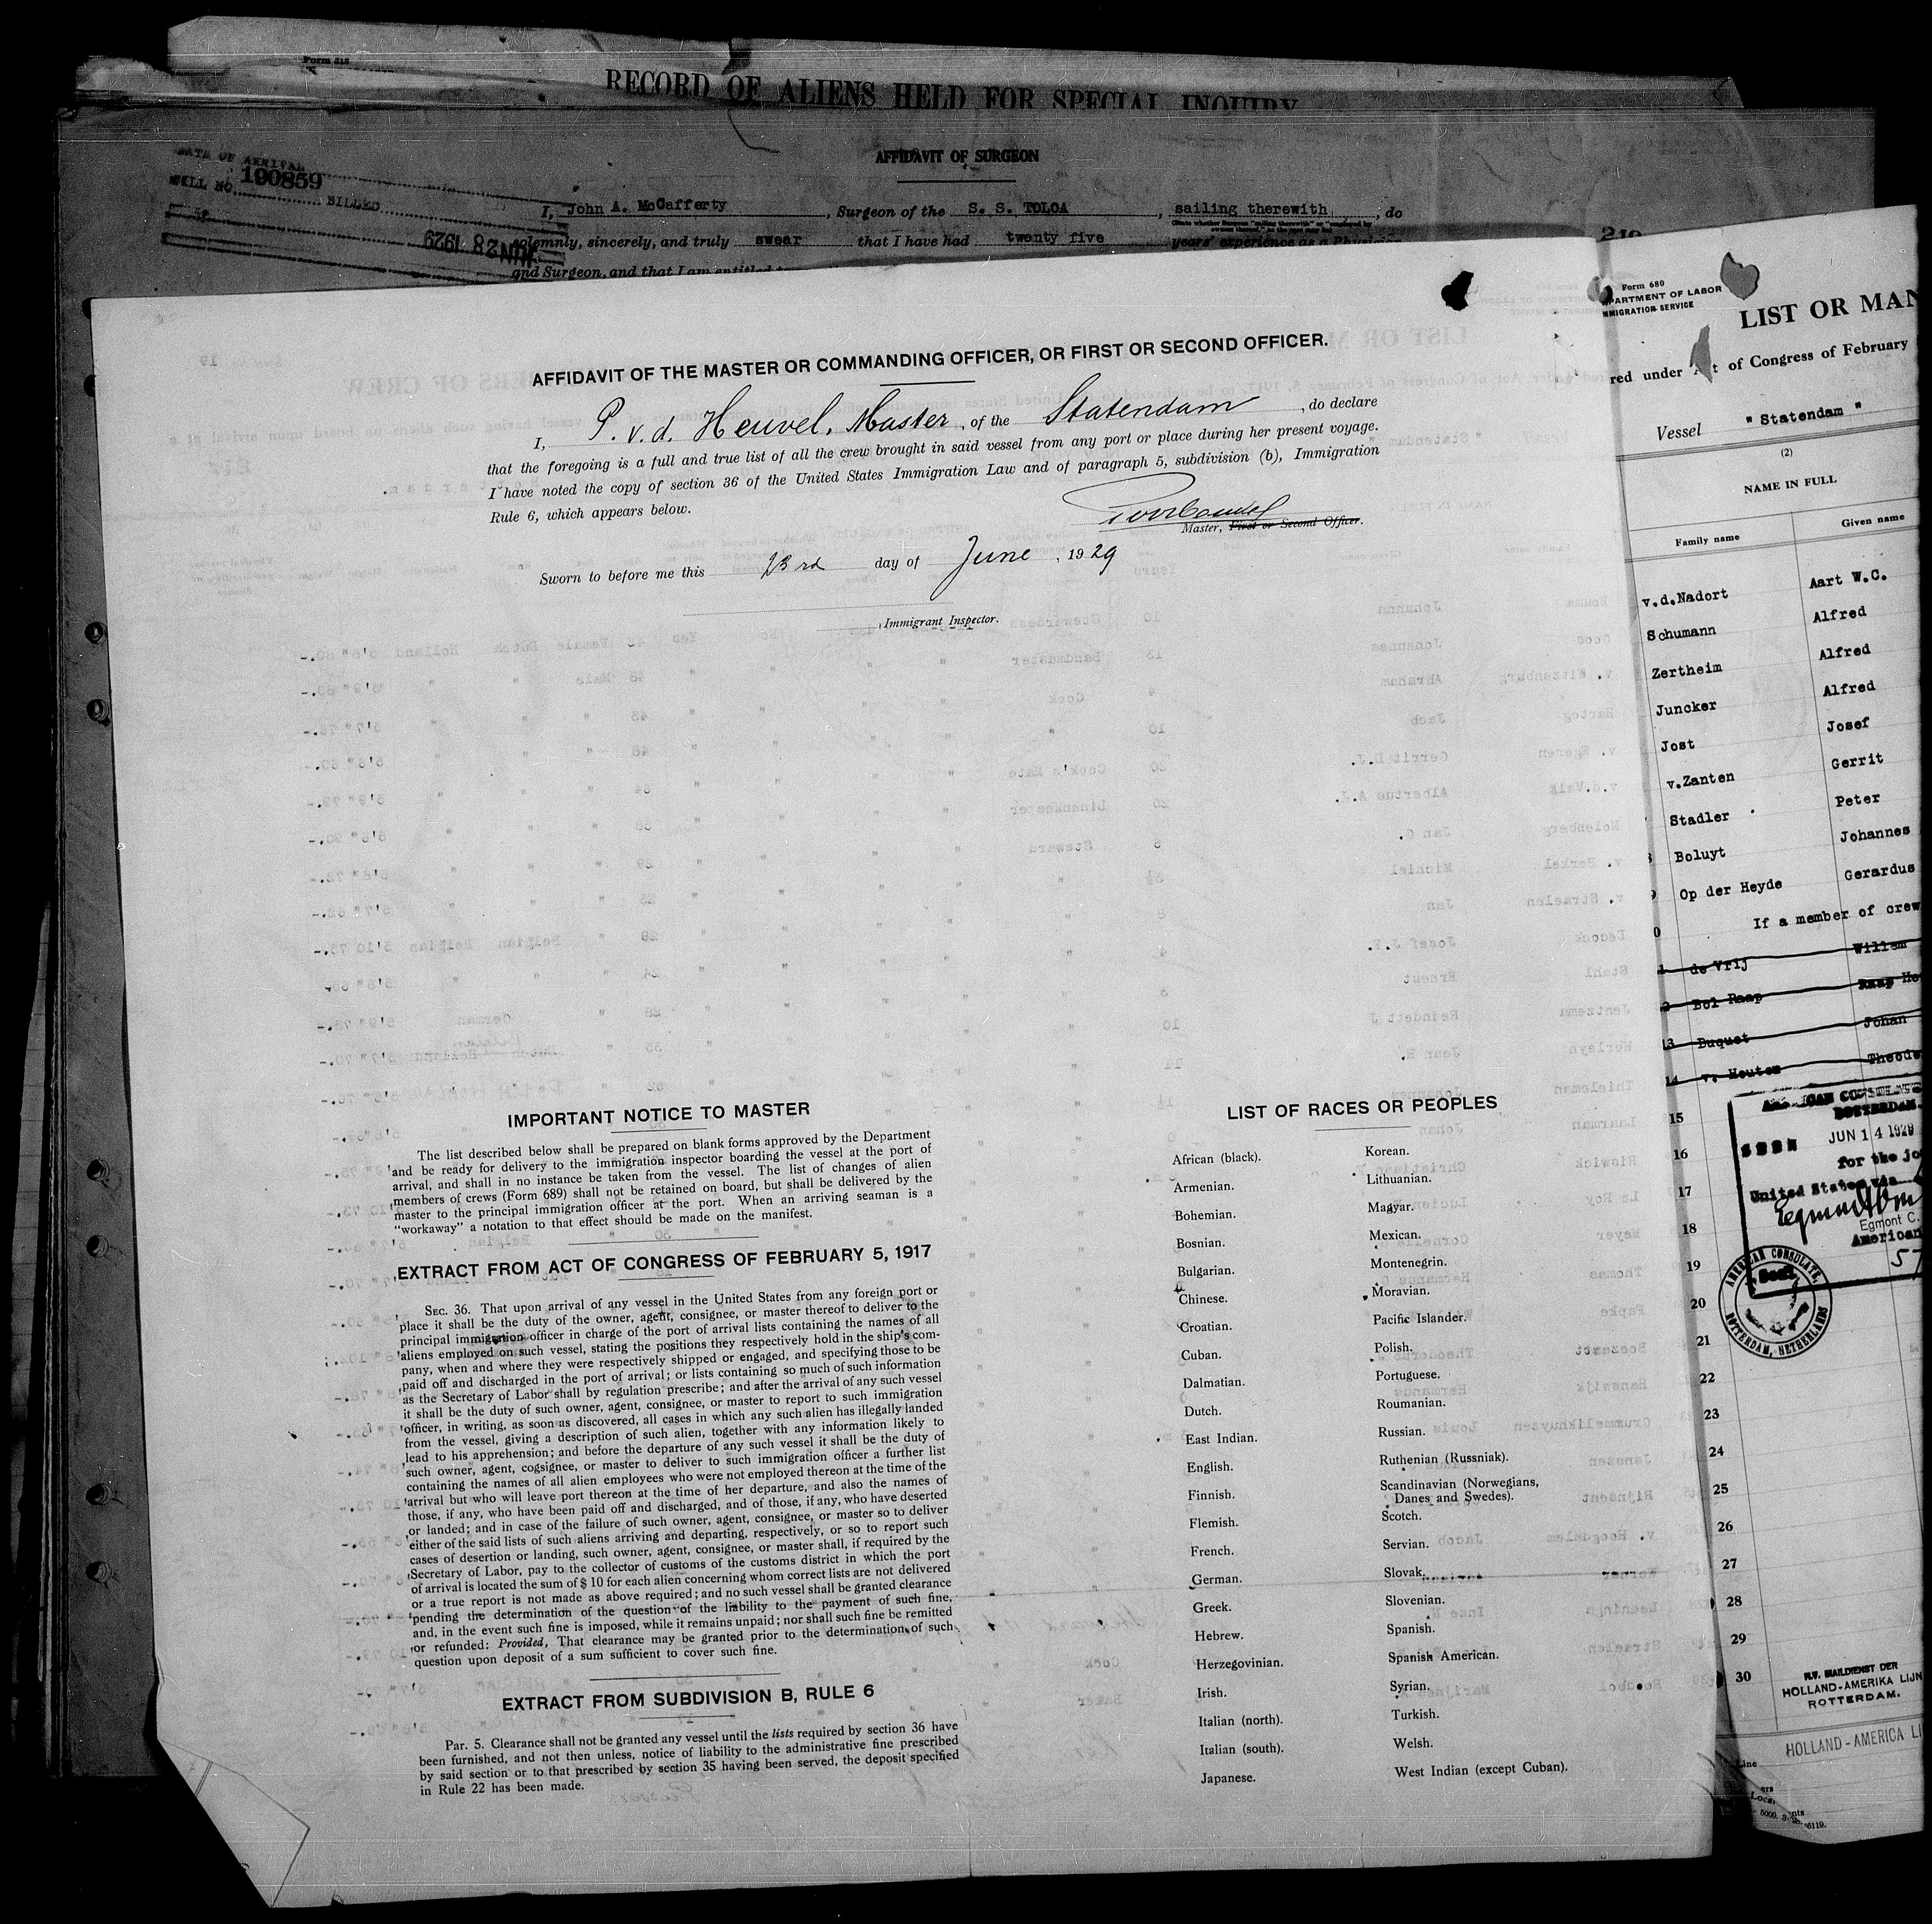 Form 616
RECORD OF ALIENS HELD FOR SPECIAL INQUIRY
AFFIDAVIT OF SURGEON
DATE OF ARRIVAL
BILL NO. 190859
BILLED
JUN 28 1929
I, John A. McCafferty, Surgeon of the S. S. TOLOA, sailing therewith, do
solemnly, sincerely, and truly swear that I have had twenty five years' experience as a Physician
and Surgeon, and that I am entitled
AFFIDAVIT OF THE MASTER OR COMMANDING OFFICER, OR FIRST OR SECOND OFFICER.
I, P. v. d. Heuvel, Master, of the Statendam, do declare
that the foregoing is a full and true list of all the crew brought in said vessel from any port or place during her present voyage.
I have noted the copy of section 36 of the United States Immigration Law and of paragraph 5, subdivision (b), Immigration
Rule 6, which appears below.
Master, First or Second Officer.
Sworn to before me this 23rd day of June, 1929
Immigrant Inspector.
IMPORTANT NOTICE TO MASTER
The list described below shall be prepared on blank forms approved by the Department
and be ready for delivery to the immigration inspector boarding the vessel at the port of
arrival, and shall in no instance be taken from the vessel. The list of changes of alien
members of crews (Form 689) shall not be retained on board, but shall be delivered by the
master to the principal immigration officer at the port. When an arriving seaman is a
"workaway" a notation to that effect should be made on the manifest.
EXTRACT FROM ACT OF CONGRESS OF FEBRUARY 5, 1917
SEC. 36. That upon arrival of any vessel in the United States from any foreign port or
place it shall be the duty of the owner, agent, consignee, or master thereof to deliver to the
principal immigration officer in charge of the port of arrival lists containing the names of all
aliens employed on such vessel, stating the positions they respectively hold in the ship's com-
pany, when and where they were respectively shipped or engaged, and specifying those to be
paid off and discharged in the port of arrival; or lists containing so much of such information
as the Secretary of Labor shall by regulation prescribe; and after the arrival of any such vessel
it shall be the duty of such owner, agent, consignee, or master to report to such immigration
officer, in writing, as soon as discovered, all cases in which any such alien has illegally landed
from the vessel, giving a description of such alien, together with any information likely to
lead to his apprehension; and before the departure of any such vessel it shall be the duty of
such owner, agent, cogsignee, or master to deliver to such immigration officer a further list
containing the names of all alien employees who were not employed thereon at the time of the
arrival but who will leave port thereon at the time of her departure, and also the names of
those, if any, who have been paid off and discharged, and of those, if any, who have deserted
or landed; and in case of the failure of such owner, agent, consignee, or master so to deliver
either of the said lists of such aliens arriving and departing, respectively, or so to report such
cases of desertion or landing, such owner, agent, consignee, or master shall, if required by the
Secretary of Labor, pay to the collector of customs of the customs district in which the port
of arrival is located the sum of $ 10 for each alien concerning whom correct lists are not delivered
or a true report is not made as above required; and no such vessel shall be granted clearance
pending the determination of the question of the liability to the payment of such fine,
and, in the event such fine is imposed, while it remains unpaid; nor shall such fine be remitted
or refunded: Provided, That clearance may be granted prior to the determination of such
question upon deposit of a sum sufficient to cover such fine.
EXTRACT FROM SUBDIVISION B, RULE 6
Par. 5. Clearance shall not be granted any vessel until the lists required by section 36 have
been furnished, and not then unless, notice of liability to the administrative fine prescribed
by said section or to that prescribed by section 35 having been served, the deposit specified
in Rule 22 has been made.
LIST OF RACES OR PEOPLES
African (black).
Armenian.
Bohemian.
Bosnian.
Bulgarian.
Chinese.
Croatian.
Cuban.
Dalmatian.
Dutch.
East Indian.
English.
Finnish.
Flemish.
French.
German.
Greek.
Hebrew.
Herzegovinian.
Irish.
Italian (north).
Italian (south).
Japanese.
Korean.
Lithuanian.
Magyar.
Mexican.
Montenegrin.
Moravian.
Pacific Islander.
Polish.
Portuguese.
Roumanian.
Russian.
Ruthenian (Russniak).
Scandinavian (Norwegians,
Danes and Swedes).
Scotch.
Servian.
Slovak.
Slovenian.
Spanish.
Spanish American.
Syrian.
Turkish.
Welsh.
West Indian (except Cuban).
Form 680
PARTMENT OF LABOR
MMIGRATION SERVICE
LIST OR MAN
red under Act of Congress of February
Vessel "Statendam"
(2)
NAME IN FULL
Family name Given name
v.d.Nadort Aart W.C.
Schumann Alfred
Zertheim Alfred
Juncker Alfred
Jost Josef
v.Zanten Gerrit
Stadler Peter
Boluyt Johannes
Op der Heyde Gerardus
If a member of crew
de Vrij Willem
Bol Raap
13 Buquet Johan
14 v. Houten
15
16
17
18
19
20
21
22
23
24
25
26
27
28
29
30
ROTTERDAM
SEEN
JUN 14 1929
for the jo
United States via
Egmont C.
American
57
AMERICAN CONSULATE,
ROTTERDAM, NETHERLANDS
Seal
N.V. MAILDIENST DER
HOLLAND-AMERIKA LIJN
ROTTERDAM.
HOLLAND-AMERICA LI
Line